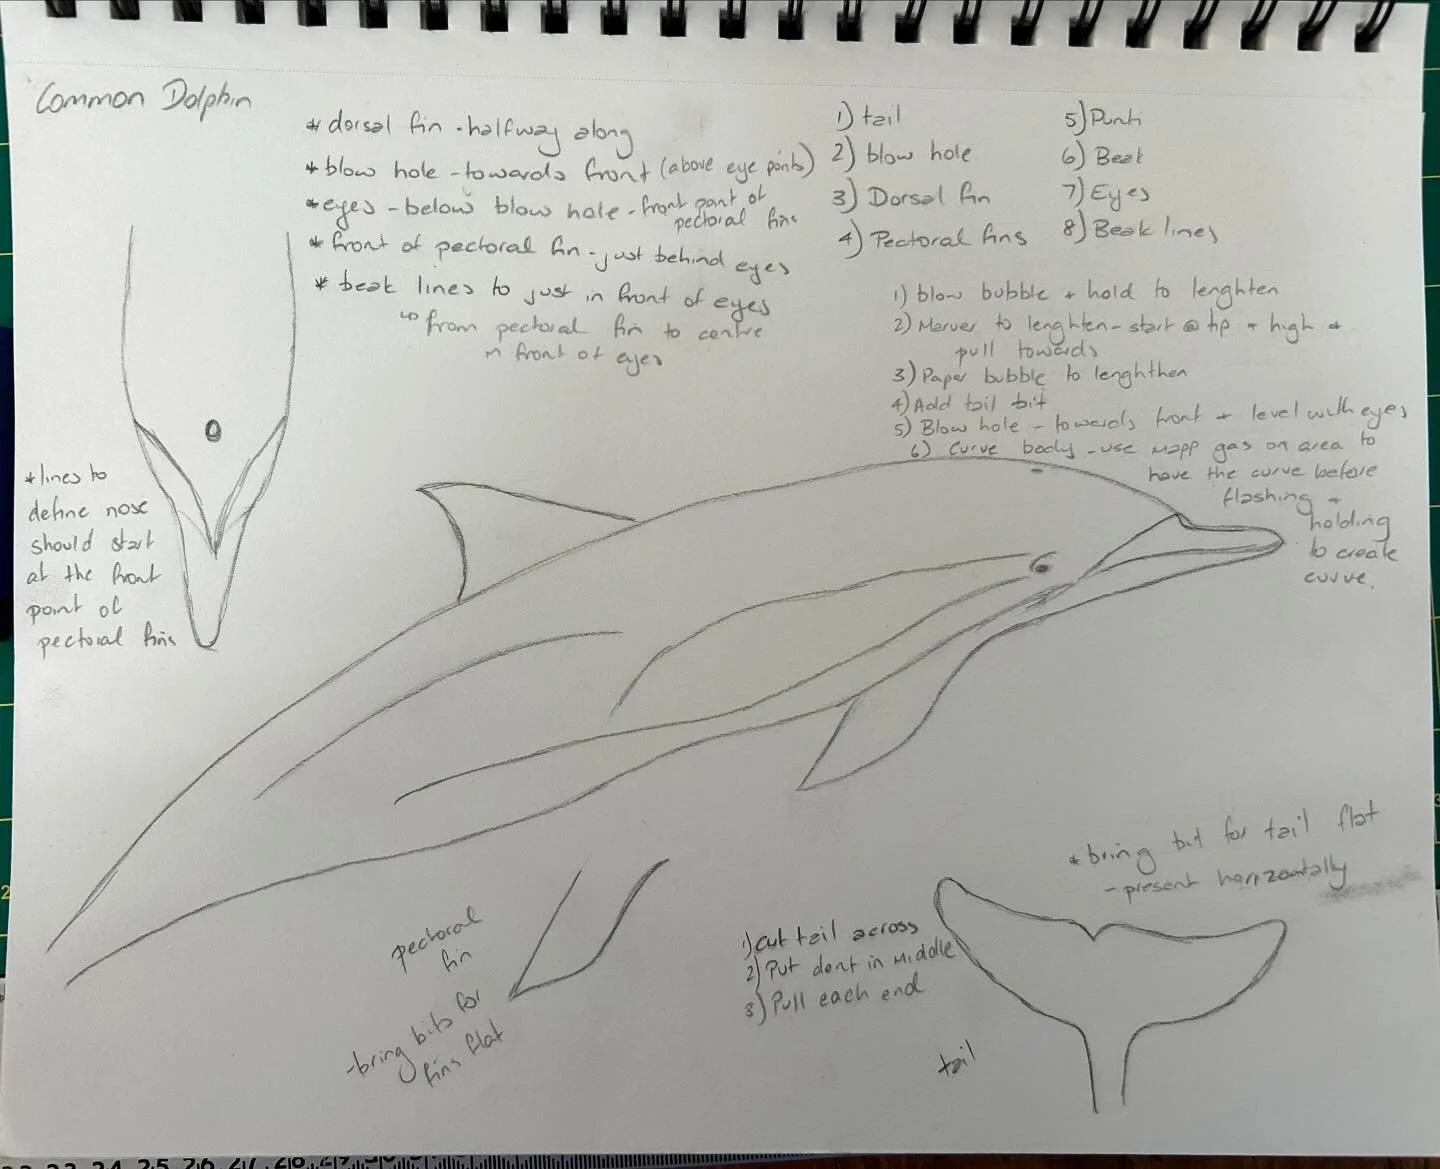 Common Dolphin
* dorsal fin - halfway along
* blow hole - towards front (above eye points)
* eyes - below blow hole - front part of
pectoral fins
* front of pectoral fin - just behind eyes
* beak lines to just in front of eyes
↳ from pectoral fin to centre
in front of eyes
1) tail
2) blow hole
3) Dorsal fin
4) Pectoral fins
5) Punti
6) Beak
7) Eyes
8) Beak lines
1) blow bubble + hold to lenghten
2) Marver to lenghten - start @ tip + high +
pull towards
3) Paper bubble to lenghthen
4) Add tail bit
5) Blow hole - towards front + level with eyes
6) Curve body - use mapp gas on area to
have the curve before
flashing +
holding
to create
curve.
* lines to
define nose
should start
at the front
point of
pectoral fins
pectoral
fin
- bring bits for
fins flat
1) cut tail across
2) Put dent in Middle
3) Pull each end
* bring bit for tail flat
- present horizontally
tail
2
23 24 25 26 27 28 29